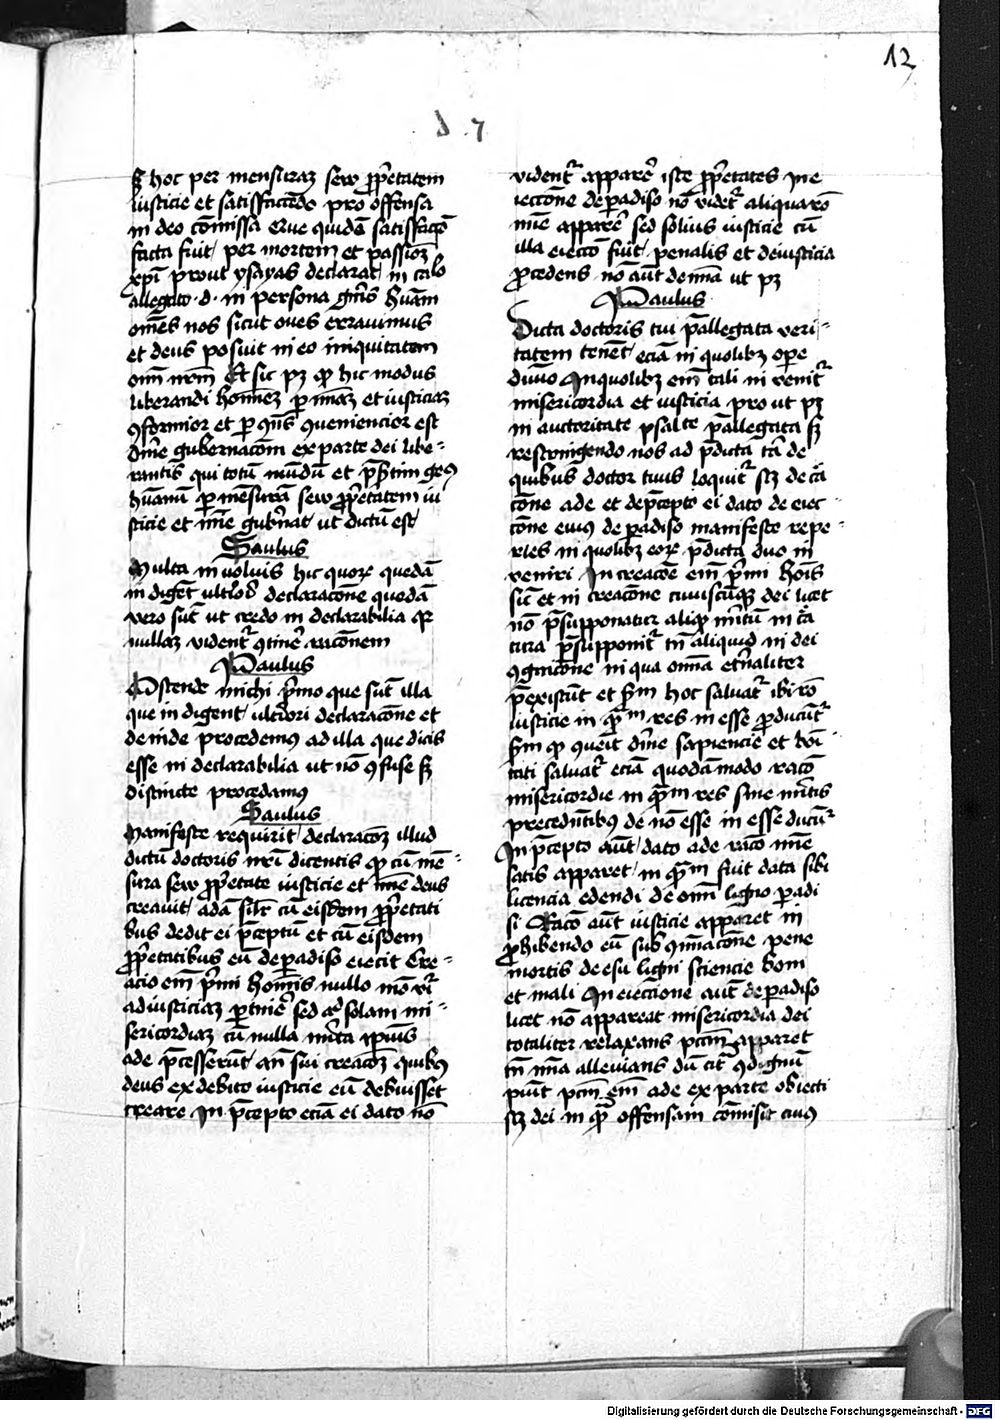 12
d. 7
hoc per mensuram seu ꝓpͥetatem
iusticie et satisfaccōꝫ pro offensa
in deo cōmissa Que quidē satisfaccō
facta fuit per mortem et passionē
xpī prout ysayas declarat in caͦ
allegato .d. in persona gn̄is hūani
om̄es nos sicut oues errauimus
et deus posuit in eo iniquitatem
om̄ nrm̄ Et sic pꝫ ꝙ hic modus
liberandi hoīnem ꝑ mīam et iusticiā
ꝯformior et ꝑ ꝯn̄s ꝯueniencior est
diuīe gubernacōni ex parte dei libe-
rantis qui totū mūdū et p̄sertim genꝰ
hūanū ꝑ mēsurā seu ꝓpͥetatem iu
sticie et mīe gubͤnat ut dictū est
Saulus
Multa in voluis hic quoꝝ quedā
in digēt vltͥori declaracōne quedā
vero sūt ut credo in declarabilia qꝛ
nullam vident͛ ꝯtinͤe racōnem
Paulus
Ostende michi pͥmo que sūt illa
que in digent vltͥori declaracōne et
deinde procedemꝰ ad illa que dicis
esse in declarabilia ut nō ꝯfuse sꝫ
distincte procedamꝰ
Saulus
Manifeste requirit declaracōꝫ illud
dictū doctoris nrī dicentis ꝙ cū mē-
sura seu ꝓpͥetate iusticie et mīe deus
creauit adā silr̄ cū eisdem ꝓpͥetati
bus dedit ei p̄ceptū et cū eisdem
ꝓpͥetatibus eū de ꝑadiso eiecit Cre-
acio em̄ pͥmi hoīnis nullo mō vr̄
ad iusticiaꝫ ꝑtinͤe sed ad solam mi-
sericordiaꝫ cū nulla mͤita ipīus
ade p̄cesserūt an̄ sui creacōꝫ quibꝰ
deus ex debito iusticie eū debuisset
creare In p̄cepto eciā ei dato nō
vident͛ apparͤe iste ꝓpͥetates In e
ieccōne de ꝑadiso nō videt͛ aliqua rō
mīe apparͤe sed solius iusticie cū
illa eieccō fuit penalis et de iusticia
ꝓcedens nō aūt de mīa ut pꝫ
Paulus
Dicta doctoris tui p̄allegata veri-
tatem tenēt eciā in quolibꝫ ope
diuīo In quolibꝫ em̄ tali in venit͛
misericordia et iusticia pro ut pꝫ
in auctoritate psal te p̄allegata sꝫ
restringendo nos ad p̄dicta tā de
quibus doctor tuus loquit͛ scꝫ de cā
cōne ade et de p̄cepto ei dato de eiec-
cōne eius de ꝑadiso manifeste repe-
ries in quolibꝫ eoꝝ p̄dicta duo in
veniri In creacōe em̄ pͥmi hoīs
sic et in creacōne cuiuscūqꝫ dei licet
nō p̄supponatur aliqđ mͤitū in cͣa
tura p̄supponit͛ tn̄ aliquid in dei
ꝯgnicōne in qua om̄a etͤnaliter
p̄existūt et scđm hoc saluat͛ ibi rō
iusticie in qͣꝫtū res in esse ꝓducūt͛
scđm ꝙ ꝯuēit diuīe sapiencie et boi
tati saluat͛ eciā quodāmodo racō
misericordie in qͣꝫtū res sine mͤitis
precedētibꝰ de nō esse in esse ducūt͛
In p̄cepto aūt dato ade racō mīe
satis apparet in qͣꝫtū fuit data sibi
licencia edendi de om̄i ligno ꝑadi
si Racō aūt iusticie apparet in
ꝓhibendo eū sub ꝯminacōne pene
mortis de esu ligni sciencie boni
et mali In eieccione aūt de ꝑadiso
licet nō appareat misericordia dei
totaliter relaxans pctm̄ apparet
tn̄ mīa alleuians dū cit͛ ꝯdignū
puīt pctm̄ em̄ ade ex parte obiecti
scꝫ dei in qͣꝫ offensam cōmisit cuiꝰ
Digitalisierung gefördert durch die Deutsche Forschungsgemeinschaft - DFG